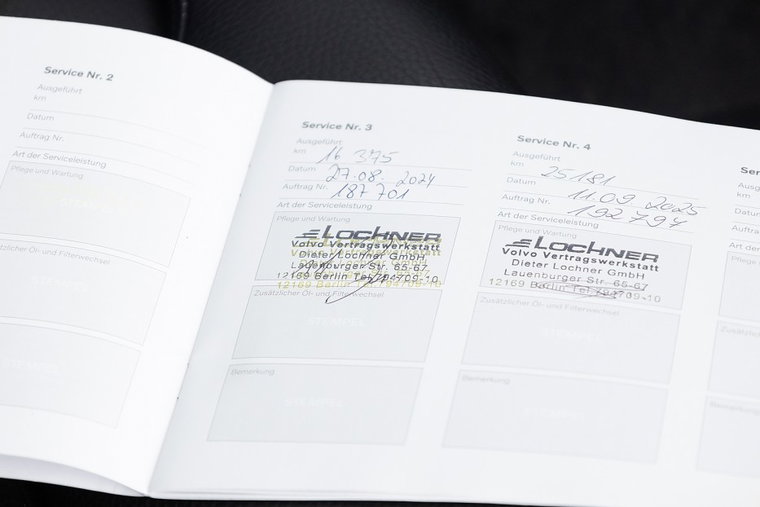 Service Nr. 2
Ausgeführt
km
Datum
Auftrag Nr.
Art der Serviceleistung
Pflege und Wartung
STEMPEL
Zusätzlicher Öl- und Filterwechsel
Service Nr. 3
Ausgeführt
km 16 375
Datum 27.08. 2024
Auftrag Nr. 187 701
Art der Serviceleistung
Pflege und Wartung
LOCHNER
Volvo Vertragswerkstatt
Dieter Lochner GmbH
Lauenburger Str. 65-67
12169 Berlin Tel. 794709-10
Zusätzlicher Öl- und Filterwechsel
STEMPEL
Bemerkung
STEMPEL
Service Nr. 4
Ausgeführt
km 25181
Datum 11.09.2025
Auftrag Nr. 192.797
Art der Serviceleistung
Pflege und Wartung
LOCHNER
Volvo Vertragswerkstatt
Dieter Lochner GmbH
Lauenburger Str. 65-67
12169 Berlin Tel. 794709-10
Zusätzlicher Öl- und Filterwechsel
STEMPEL
Bemerkung
STEMPEL
Ausgeführt
km
Datum
Auftrag
Art der
Pflege
Zusätzlich
Bemerk